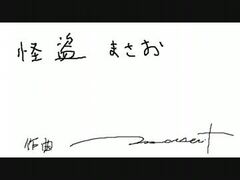 怪盗 まさお
作曲 Mozart